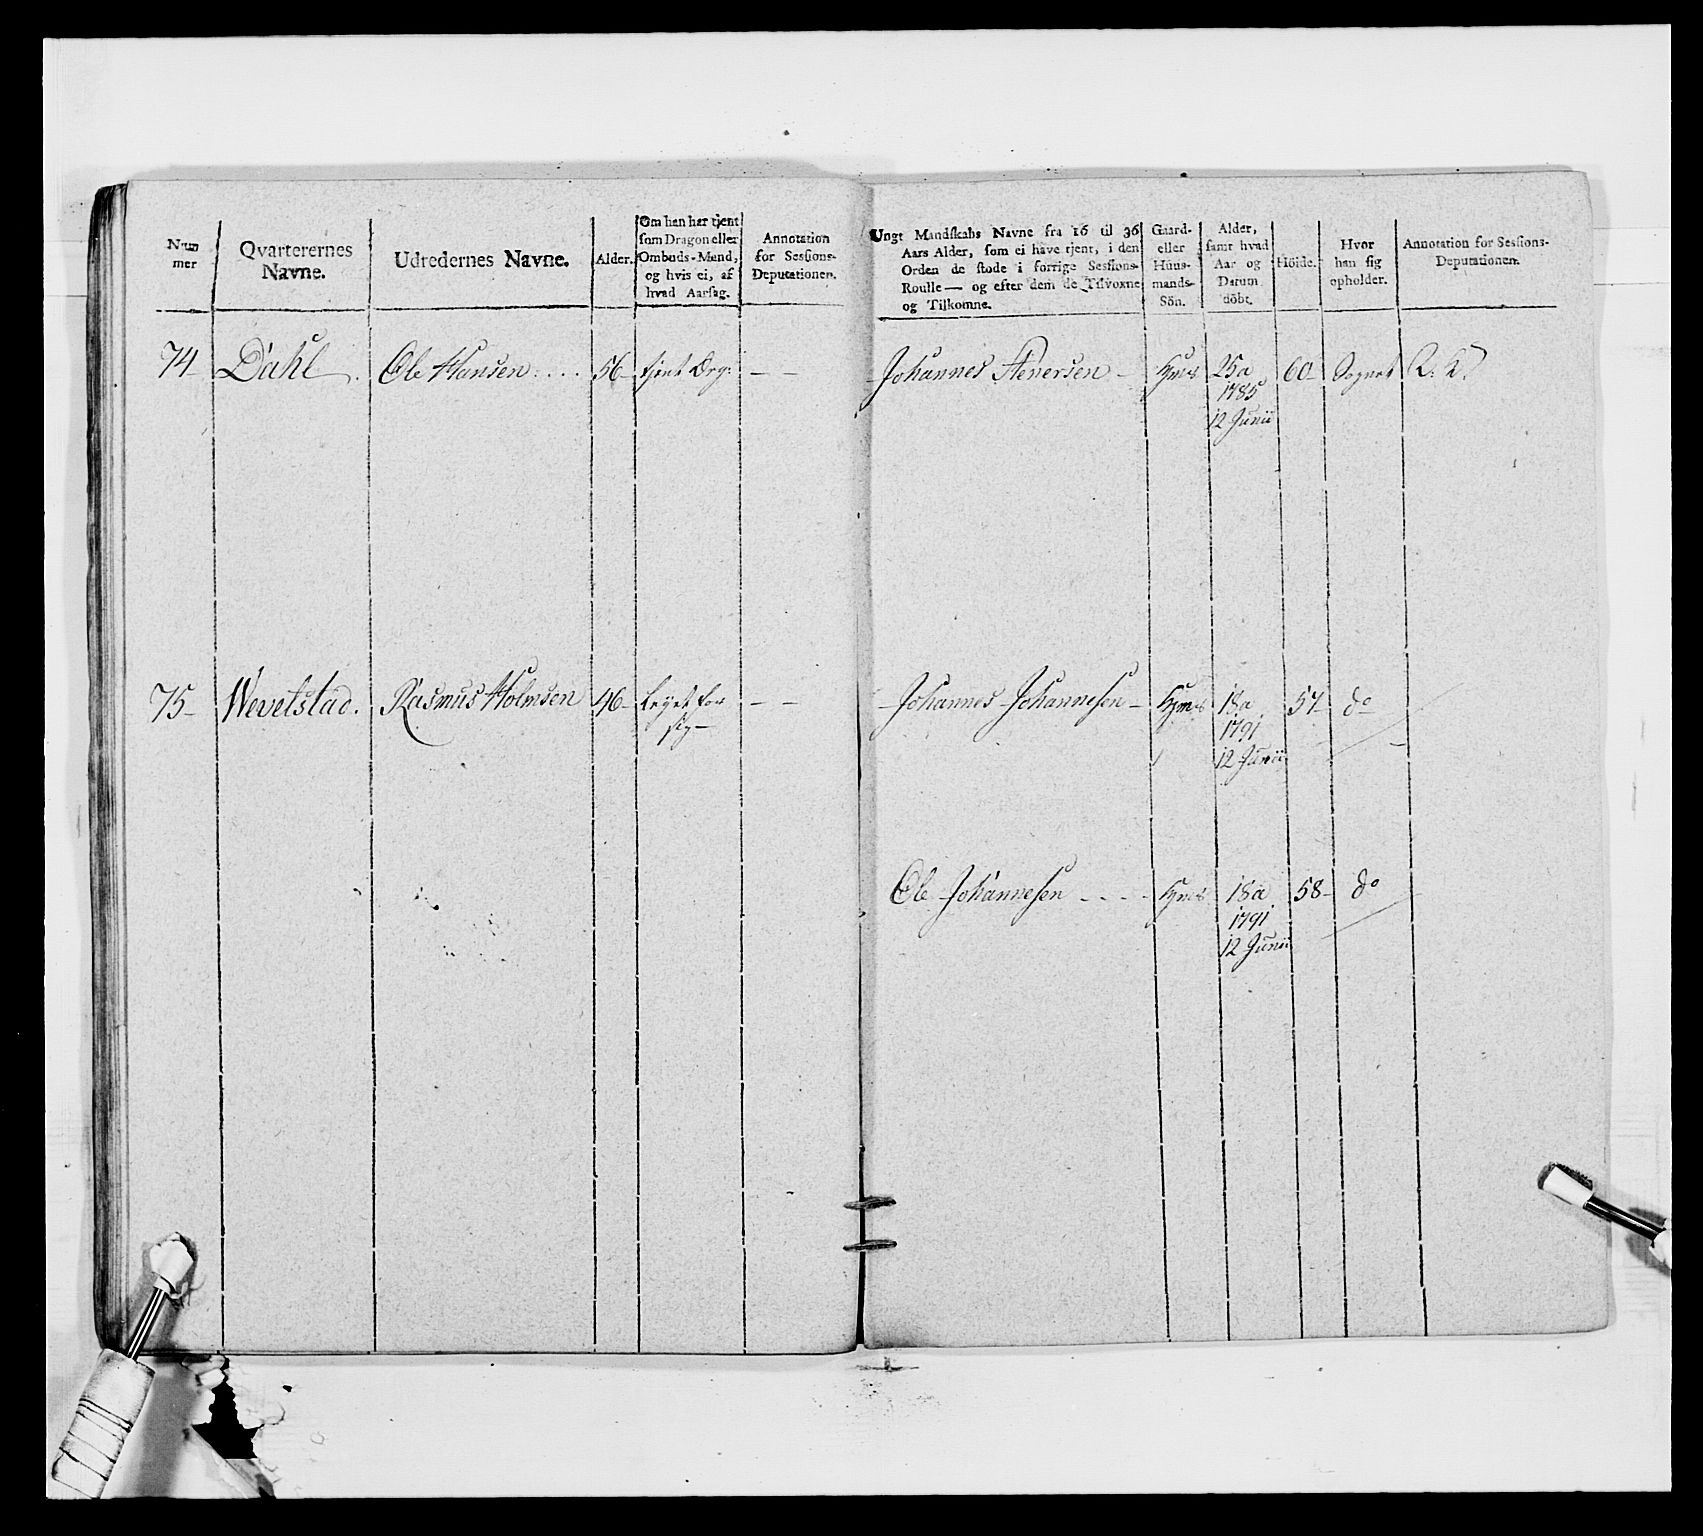 Num
mer
Qvarterernes
Navne.
Udredernes Navne.
Alder.
Om han har tjent
som Dragon eller
Ombuds-Mand,
og hvis ei, af
hvad Aarsag.
Annotation
for Sessions-
Deputationen.
Ungt Mandskabs Navne fra 16 til 36
Aars Alder, som ei have tjent, i den
Orden de stode i forrige Sessions-
Roulle — og efter dem de Tilvoxne
og Tilkomne.
Gaard-
eller
Huus-
mands-
Sön.
Alder,
samt hvad
Aar og
Datum
döbt.
Höide.
Hvor
han sig
opholder.
Annotation for Sessions-
Deputationen.
74 Dahl. Ole Hansen .... 56- tjent Drg: — —
Johannes Stenersen - 25a 60- Sognet
1785
12 Junii
75- Wevelstad. Rasmus Holmsen 46- for — —
sig —
Johannes Johannesen - 18a 57- do
1791
12 Junii
Ole Johannesen - - - - 18a 58- do
1791
12 Junii